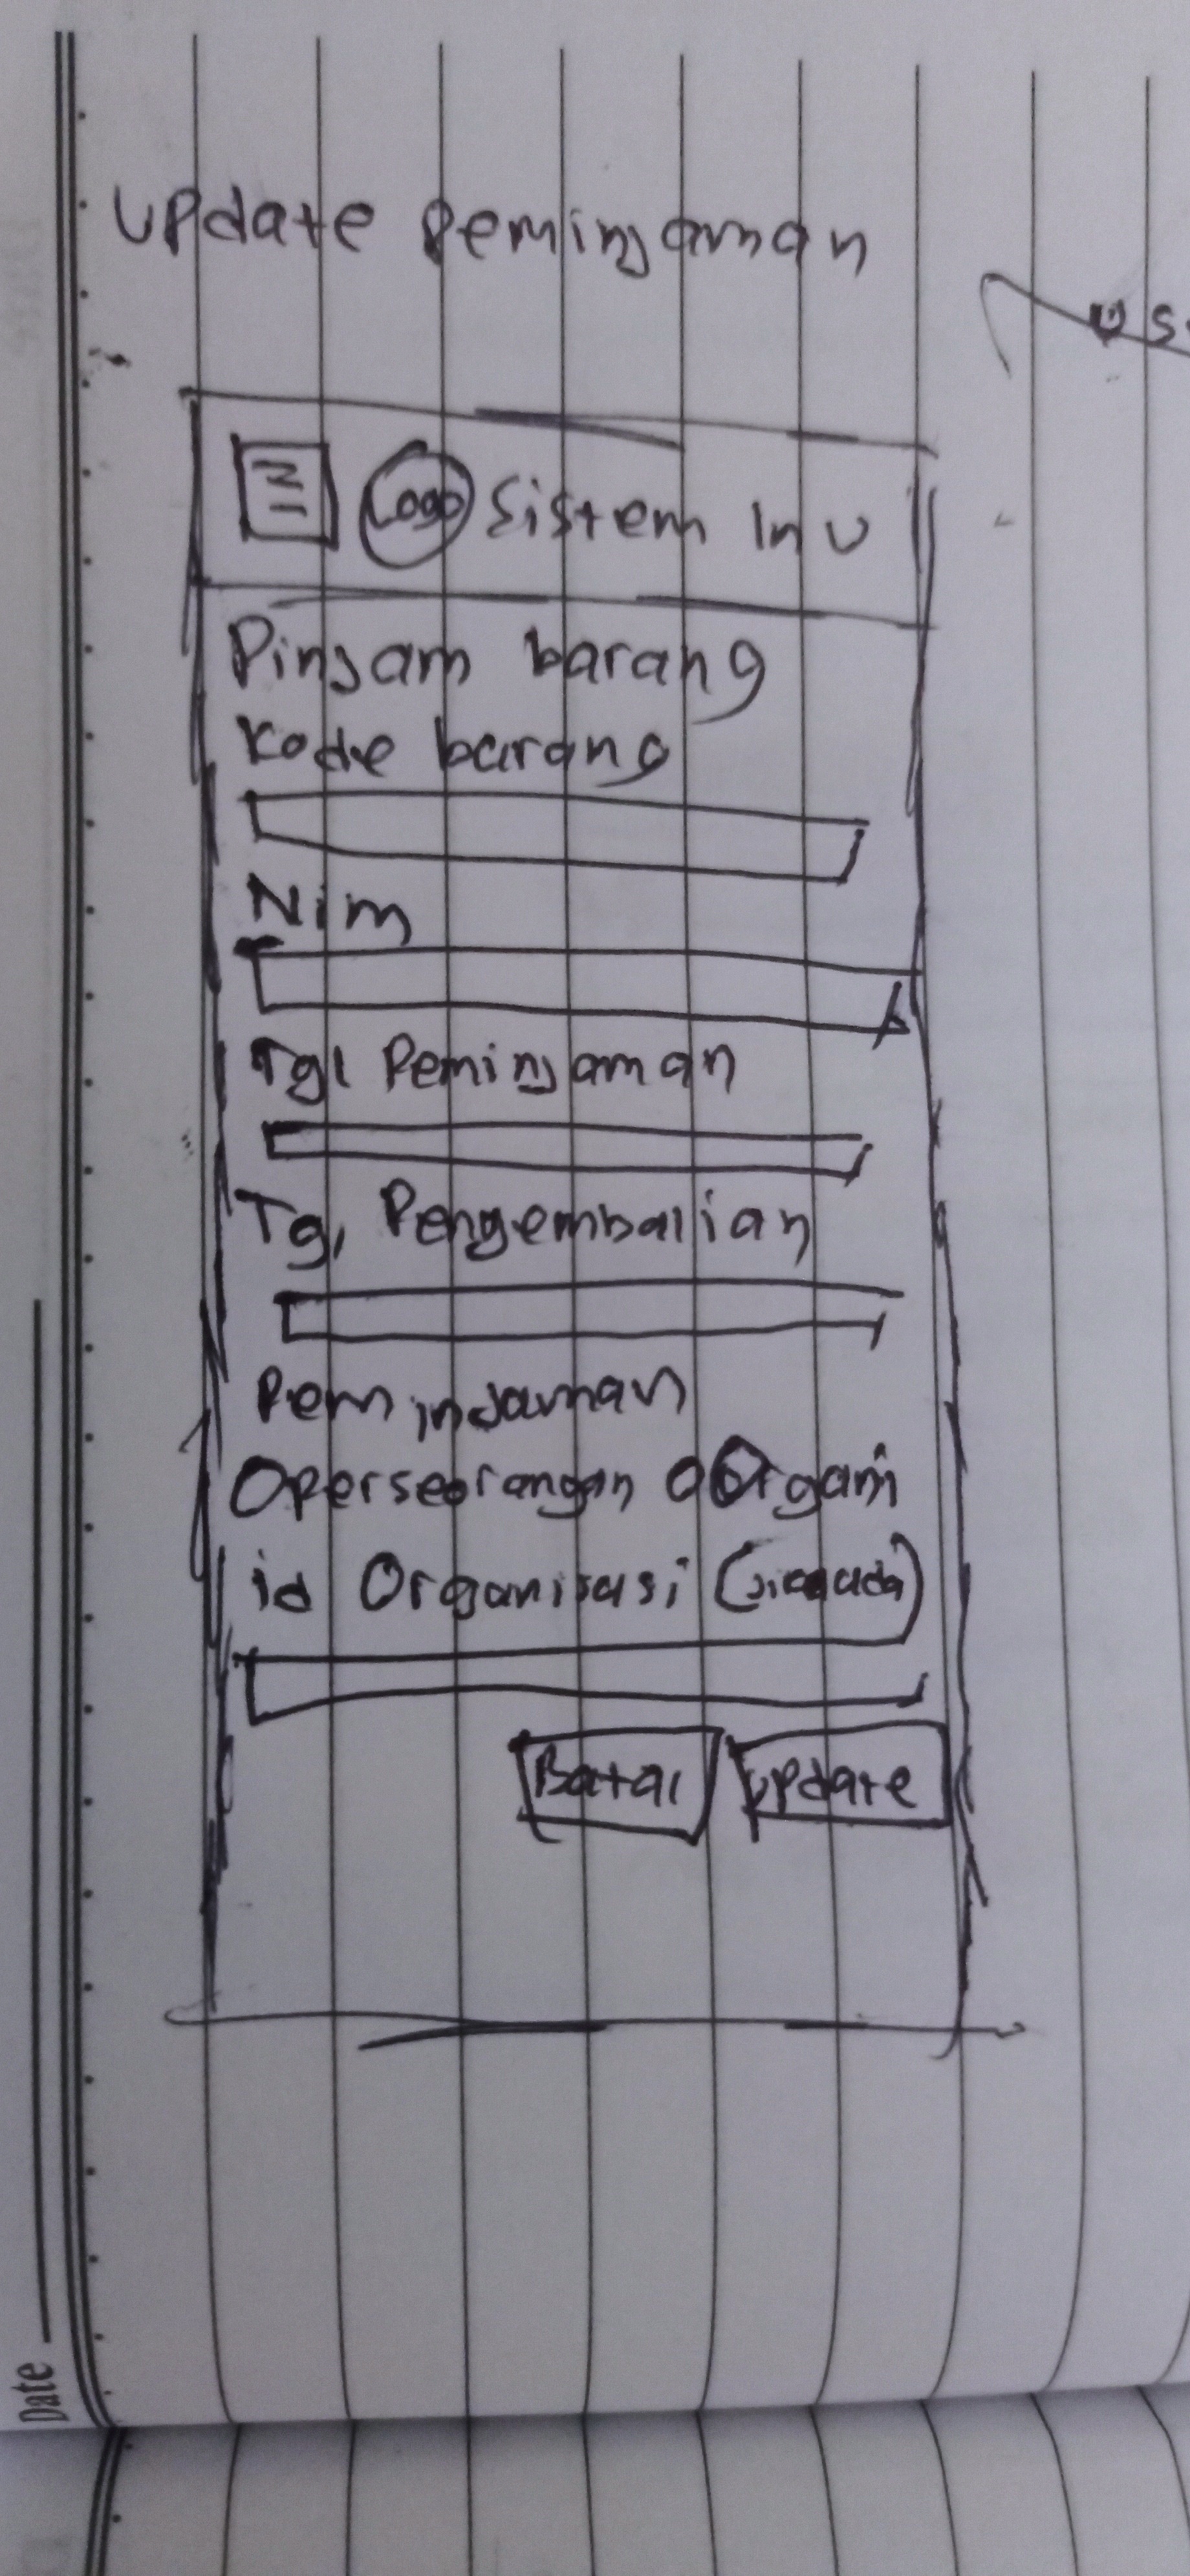 Update Peminjaman
Logo Sistem Inv
Pinjam barang
Kode barang
Nim
Tgl Peminjaman
Tgl Pengembalian
Peminjaman
O Perseorangan O Organi
id Organisasi (jika ada)
Batal Update
Date